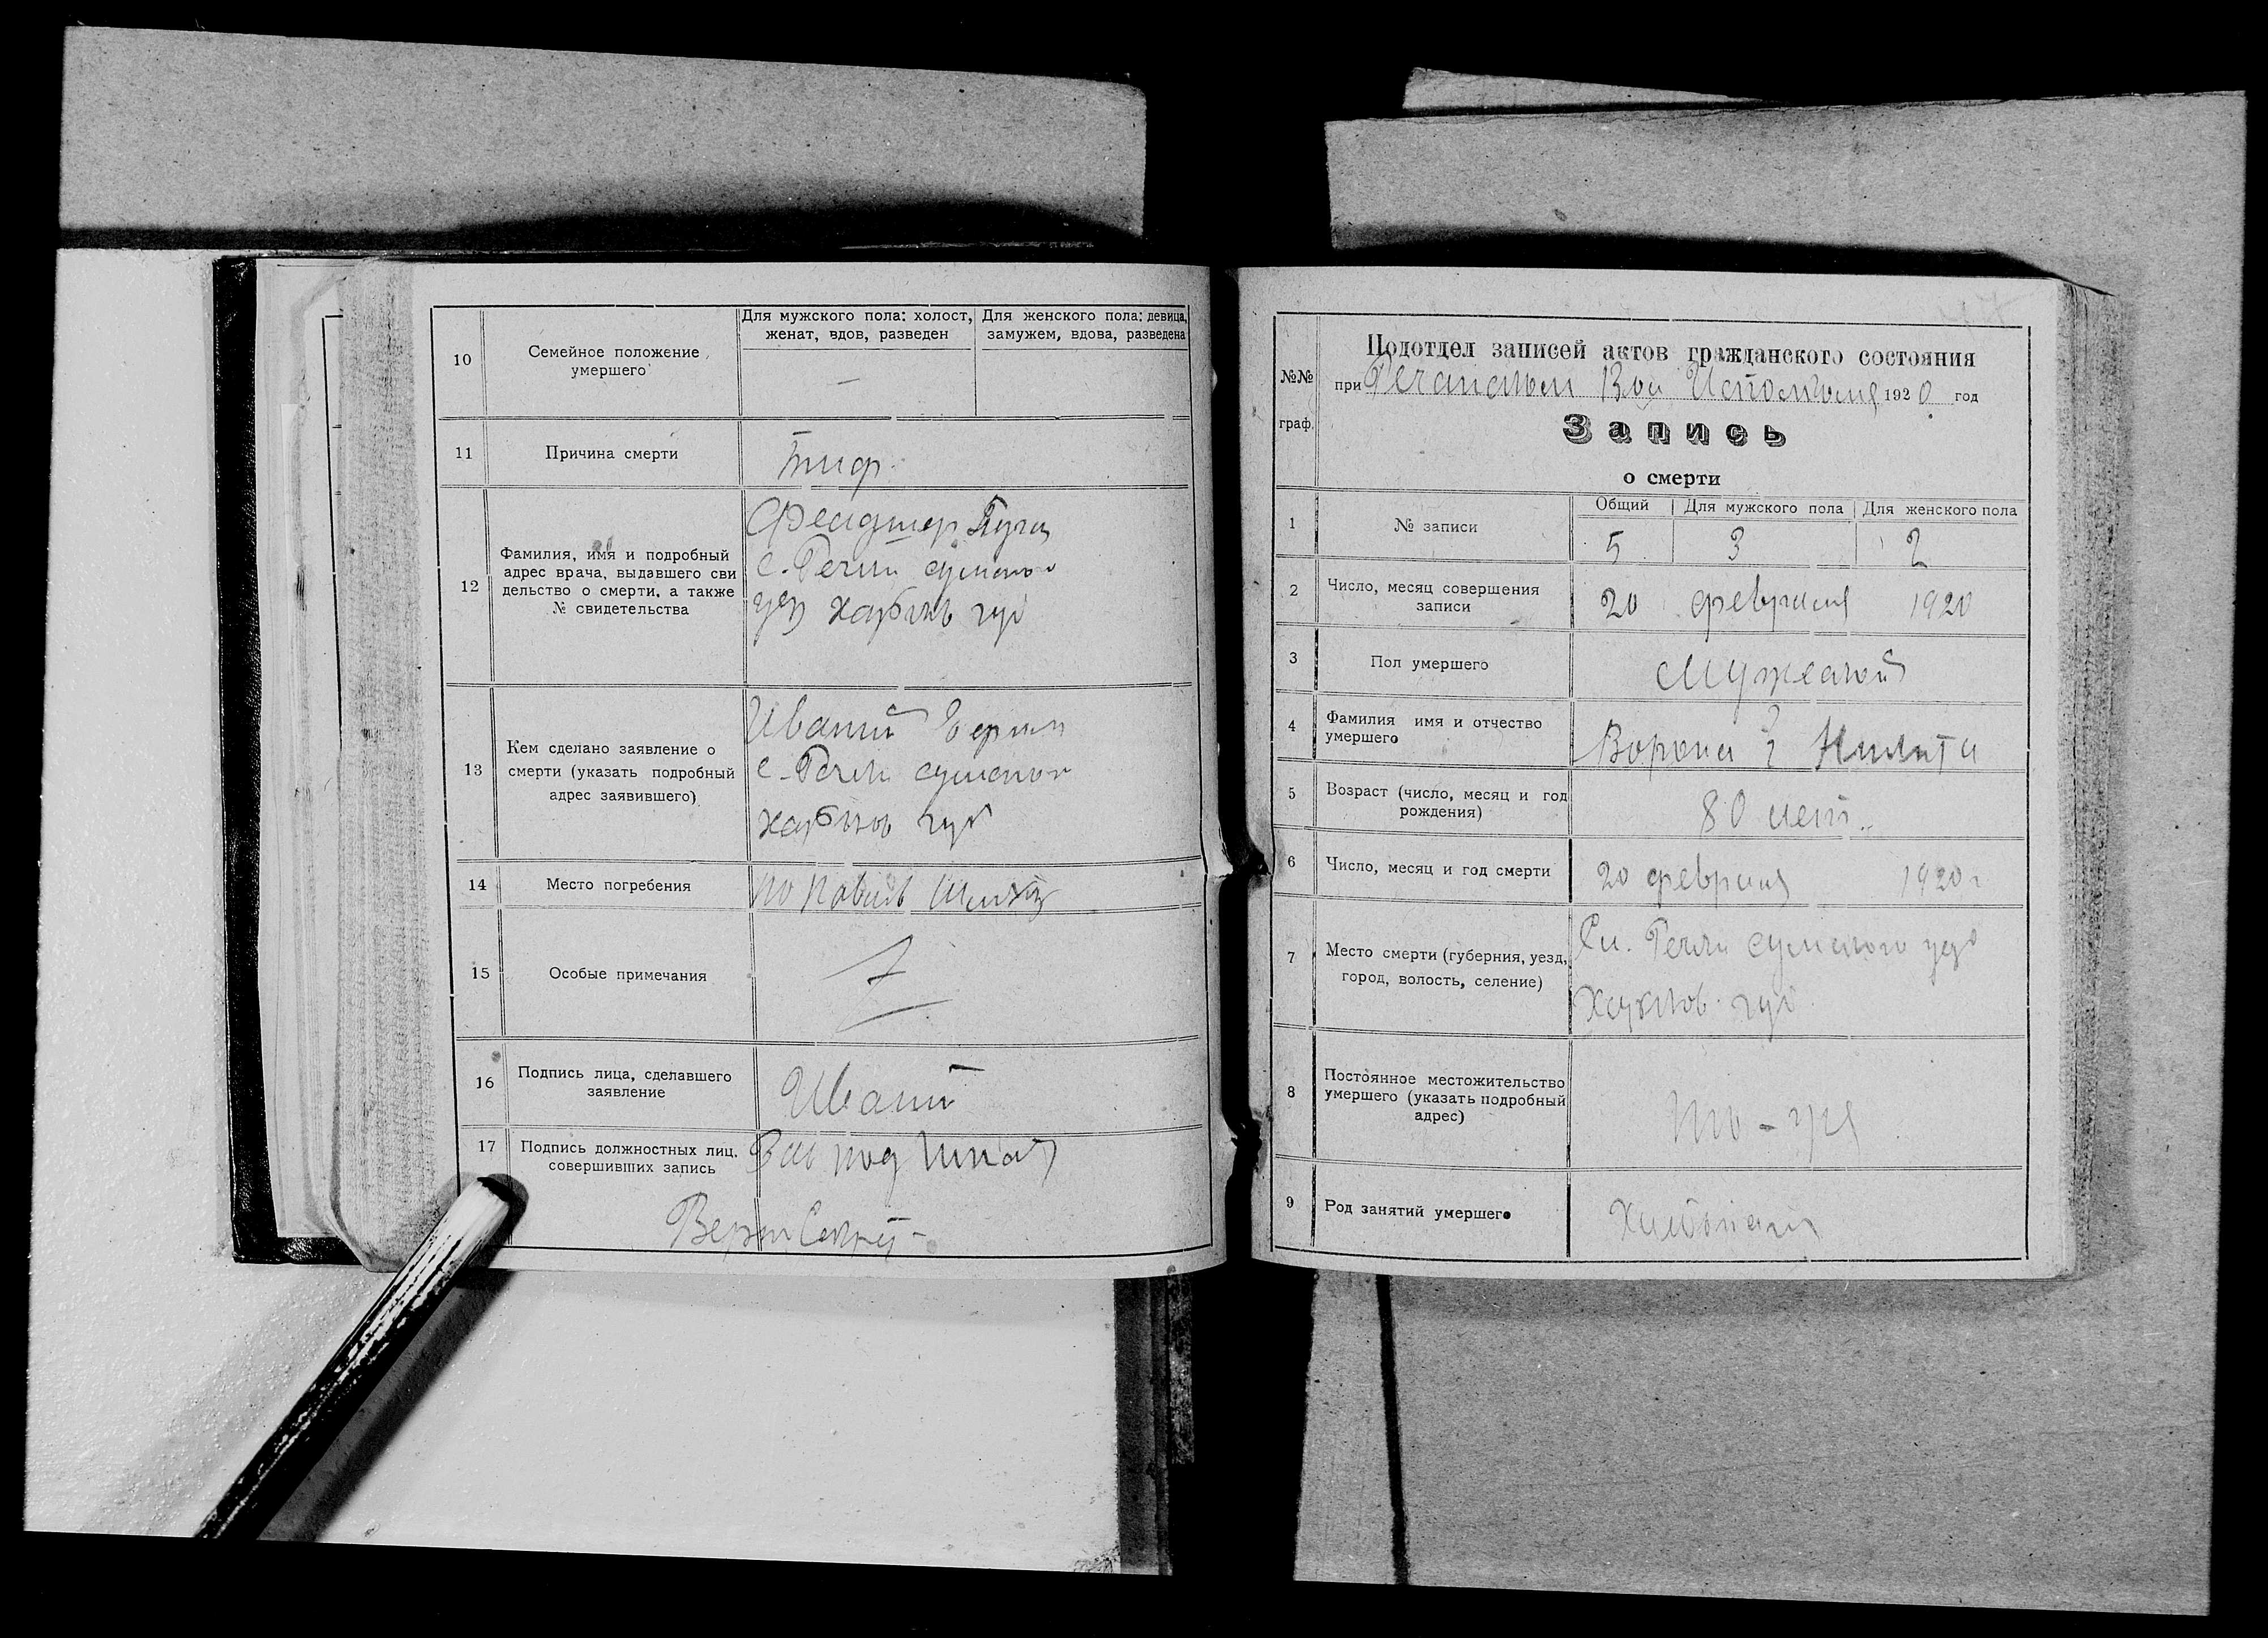 10
Семейное положение
умершего
Для мужского пола: холост,
женат, вдов, разведен
Для женского пола: девица,
замужем, вдова, разведена
—
11
Причина смерти
тиф
12
Фамилия, имя и подробный
адрес врача, выдавшего сви
дельство о смерти, а также
№ свидетельства
Фельдшер
с. Речки сумского
уез харьков губ
13
Кем сделано заявление о
смерти (указать подробный
адрес заявившего)
Иваний
с. Речки сумского
харьков губ
14
Место погребения
15
Особые примечания
16
Подпись лица, сделавшего
заявление
Иваний
17
Подпись должностных лиц,
совершивших запись
Зав под
№№
граф.
Подотдел записей актов гражданского состояния
при Речанском Вол Исполкоме 1920 год
Запись
о смерти
1
№ записи
Общий
Для мужского пола
Для женского пола
5
3
2
2
Число, месяц совершения
записи
20 февраля 1920
3
Пол умершего
Мужской
4
Фамилия имя и отчество
умершего
Ворона ? Никита
5
Возраст (число, месяц и год
рождения)
80 лет
6
Число, месяц и год смерти
20 февраля 1920 г
7
Место смерти (губерния, уезд,
город, волость, селение)
Сл. Речки сумского уез
Харьков. губ.
8
Постоянное местожительство
умершего (указать подробный
адрес)
9
Род занятий умершего